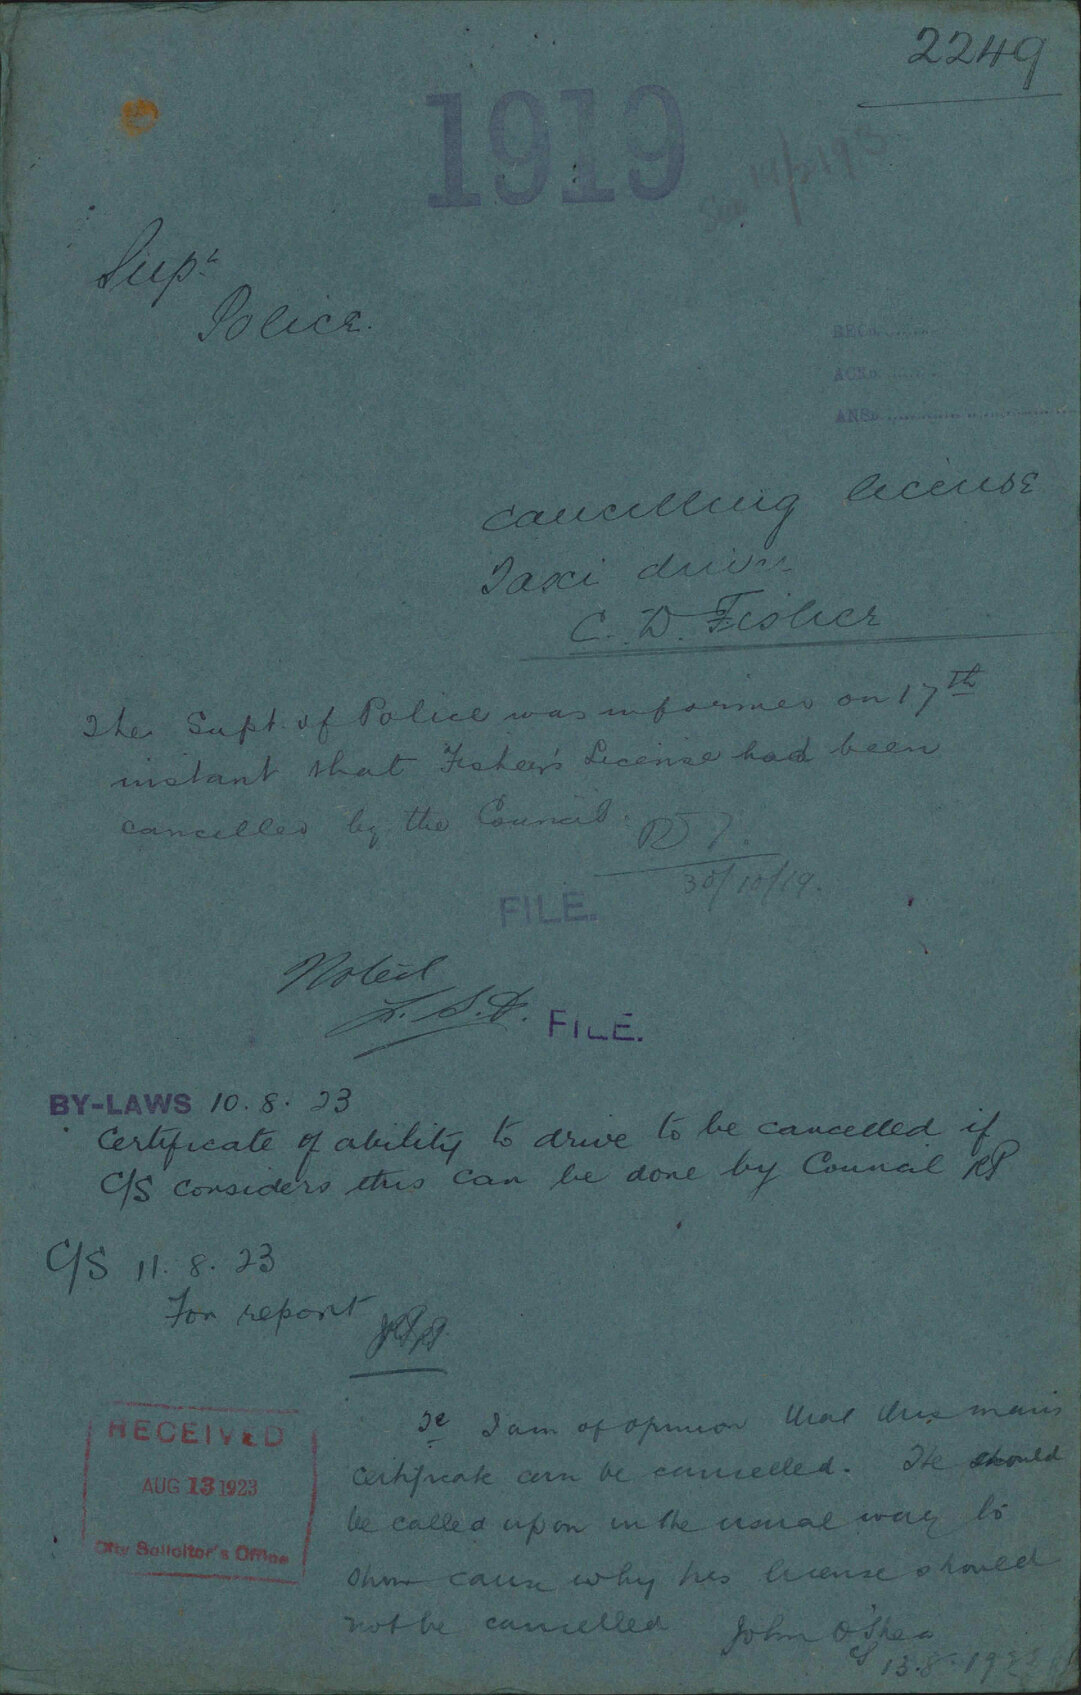 2249
1919
Supt
Police.
RECD.
ACKD.
ANSD.
Cancelling license
Taxi driver
C. D. Fisher
The Supt. of Police was informed on 17th
instant that Fisher's License had been
cancelled by the Council.
30/10/19.
FILE.
Noted
FILE.
BY-LAWS 10.8.23
Certificate of ability to drive to be cancelled if
C/S considers this can be done by Council RP
C/S 11.8.23
For report
RECEIVED
AUG 13 1923
City Solicitor's Office
I am of opinion that this mans
certificate can be cancelled. He should
be called upon in the usual way to
show cause why his license should
not be cancelled John O'Shea
CS 13.8.1923